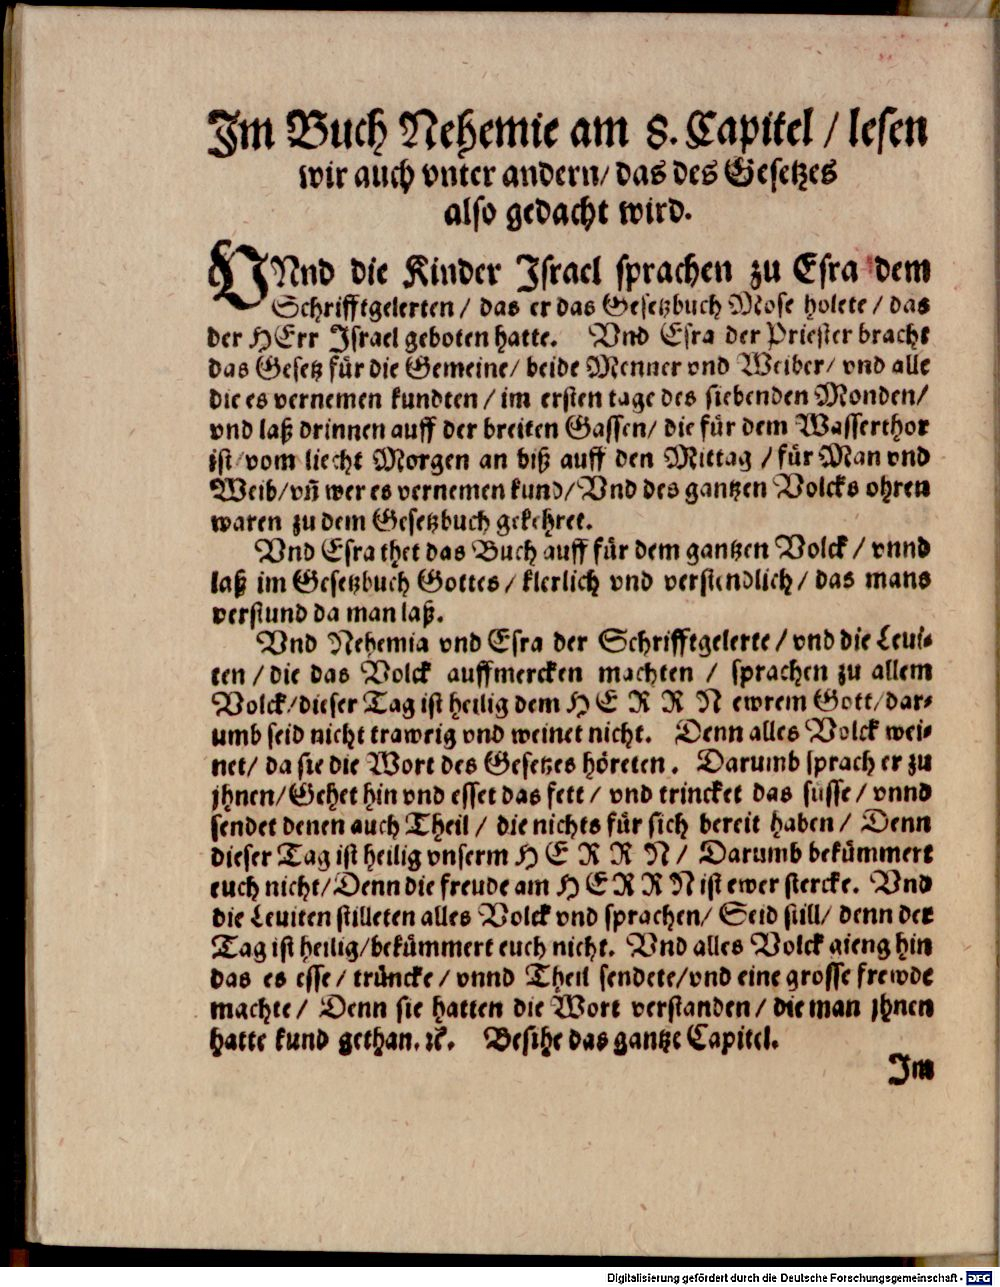 Im Buch Nehemie am 8. Capitel / lesen
wir auch vnter andern / das des Gesetzes
also gedacht wird.
VNnd die Kinder Israel sprachen zu Esra dem
Schrifftgelerten / das er das Gesetzbuch Mose holete / das
der HErr Israel geboten hatte. Vnd Esra der Priester bracht
das Gesetz für die Gemeine / beide Menner vnd Weiber / vnd alle
die es vernemen kundten / im ersten tage des siebenden Monden /
vnd laß drinnen auff der breiten Gassen / die für dem Wasserthor
ist / vom liecht Morgen an biß auff den Mittag / für Man vnd
Weib / vñ wer es vernemen kund / Vnd des gantzen Volcks ohren
waren zu dem Gesetzbuch gekehret.
Vnd Esra thet das Buch auff für dem gantzen Volck / vnnd
laß im Gesetzbuch Gottes / klerlich vnd verstendlich / das mans
verstund da man laß.
Vnd Nehemia vnd Esra der Schrifftgelerte / vnd die Leui-
ten / die das Volck auffmercken machten / sprachen zu allem
Volck / dieser Tag ist heilig dem H E R R N ewrem Gott / dar-
umb seid nicht trawrig vnd weinet nicht. Denn alles Volck wei-
net / da sie die Wort des Gesetzes höreten. Darumb sprach er zu
jhnen / Gehet hin vnd esset das fett / vnd trincket das süsse / vnnd
sendet denen auch Theil / die nichts für sich bereit haben / Denn
dieser Tag ist heilig vnserm H E R R N / Darumb bekümmert
euch nicht / Denn die freude am H E R R N ist ewer stercke. Vnd
die Leuiten stilleten alles Volck vnd sprachen / Seid still / denn der
Tag ist heilig / bekümmert euch nicht. Vnd alles Volck gieng hin
das es esse / trüncke / vnnd Theil sendete / vnd eine grosse frewde
machte / Denn sie hatten die Wort verstanden / die man jhnen
hatte kund gethan. ꝛc. Besihe das gantze Capitel.
Im
Digitalisierung gefördert durch die Deutsche Forschungsgemeinschaft - DFG